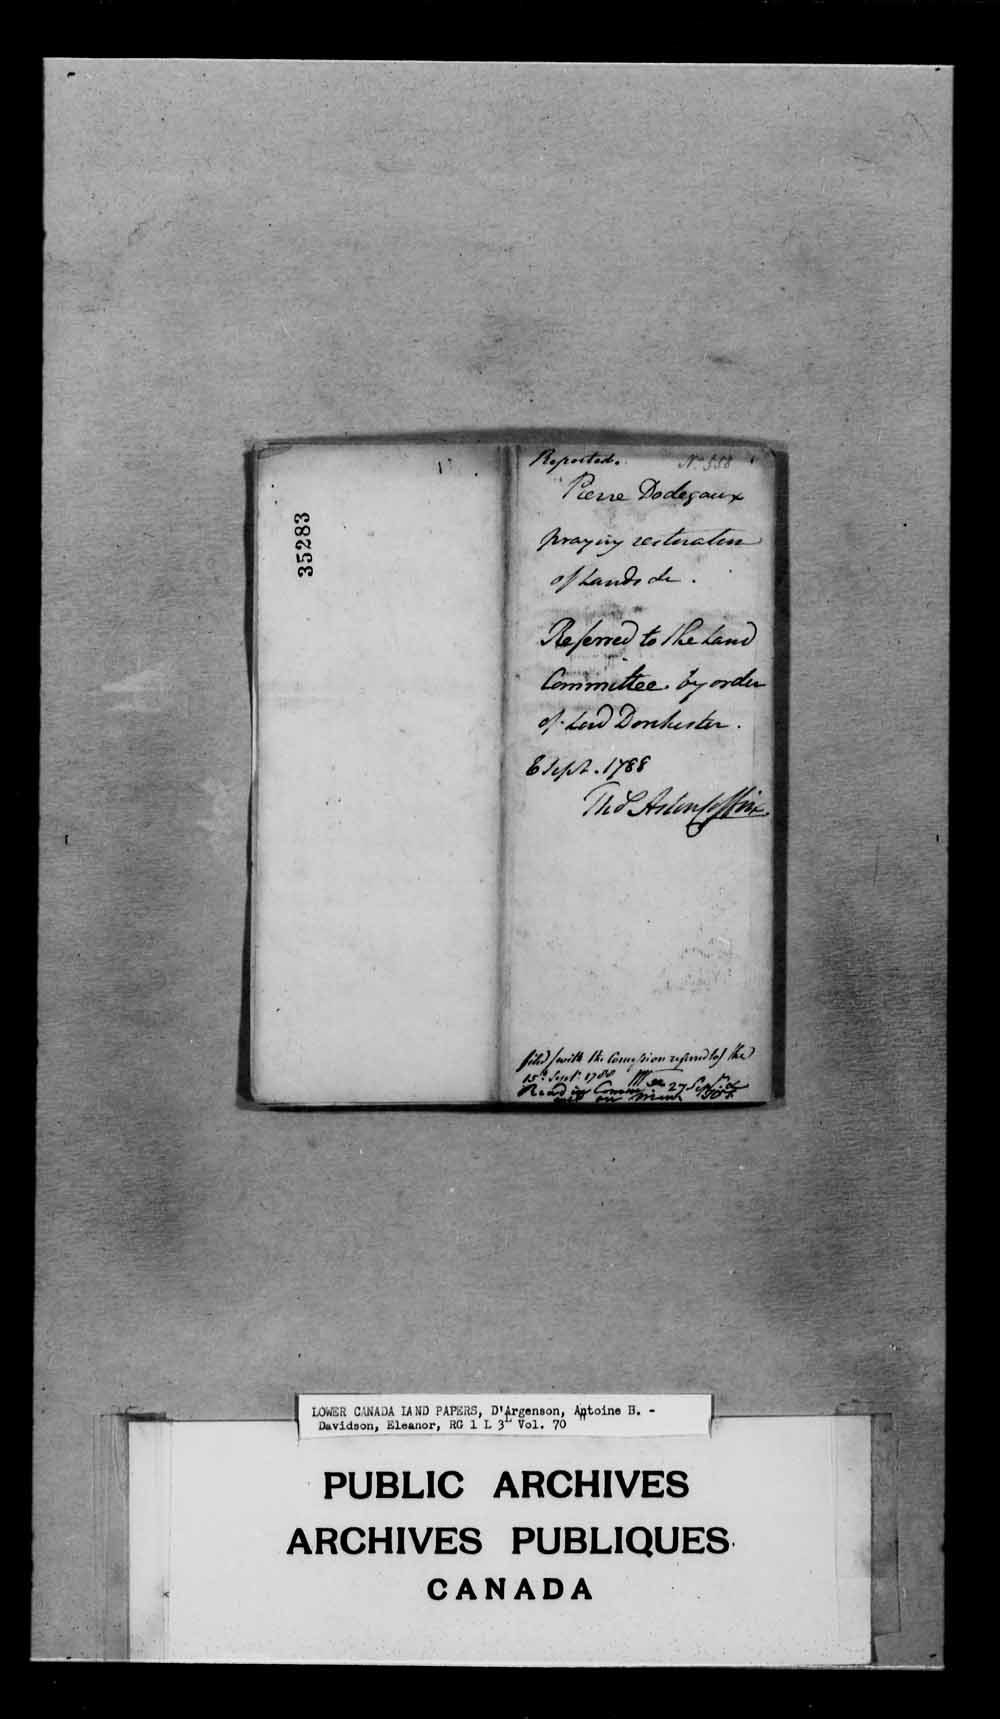 35283
Reported. No. 558
Pierre Dodegaux
praying restoration
of Lands &c.
Referred to the Land
Committee by order
of Lord Dorchester.
6 Sept. 1788
Tho.s Aston Coffin
filed (with the Concession referred to) the
15th Sept. 1788
Read in Comm 27 Sept.
LOWER CANADA LAND PAPERS, D'Argenson, Antoine B. -
Davidson, Eleanor, RG 1 L 3L Vol. 70
PUBLIC ARCHIVES
ARCHIVES PUBLIQUES
CANADA